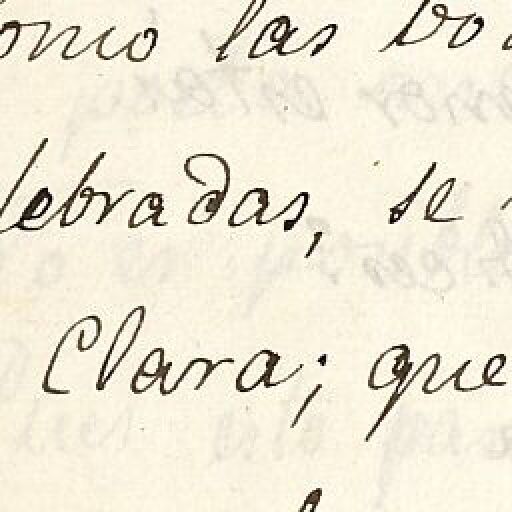 omo las bo
lebradas, se
Clara; que